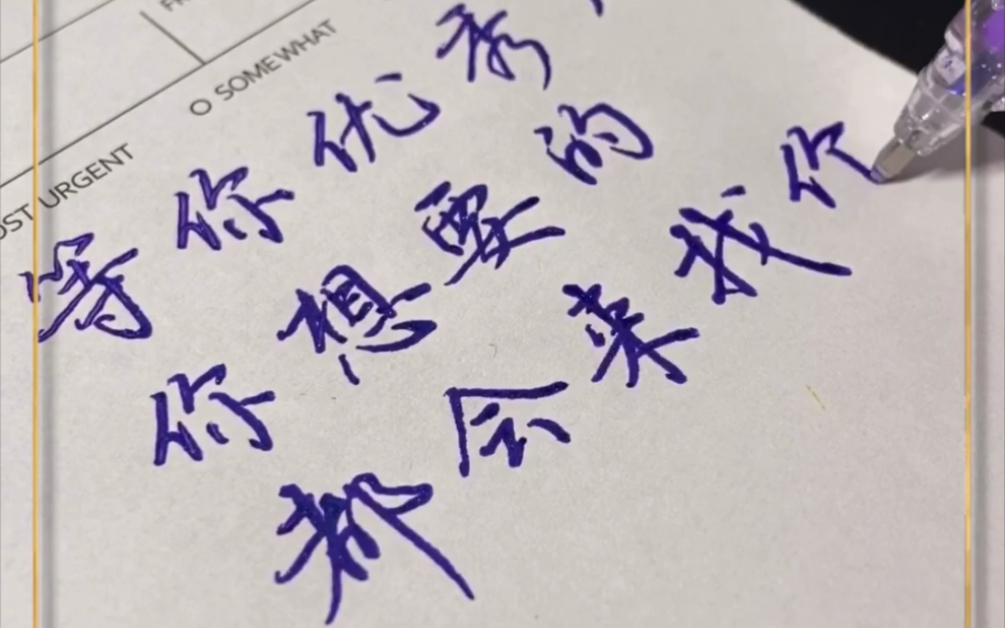 O SOMEWHAT
URGENT
等你优秀，
你想要的
都会来找你